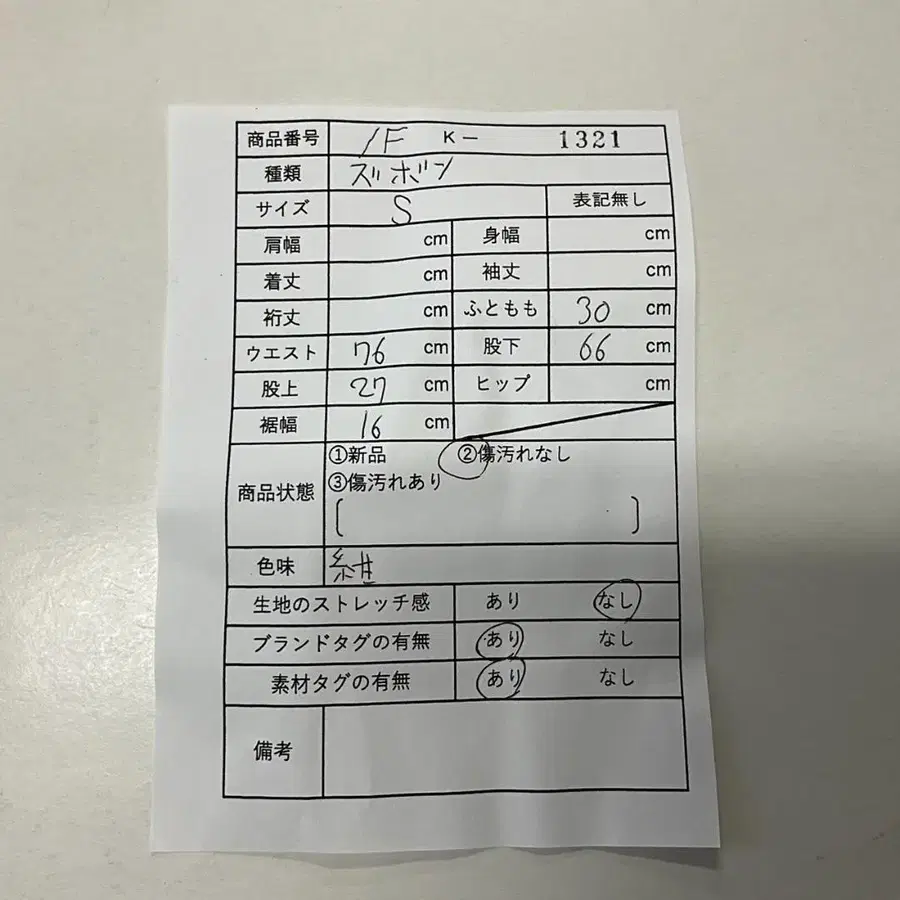 商品番号 1F K－ 1321
種類 ズボン
サイズ S 表記無し
肩幅 cm 身幅 cm
着丈 cm 袖丈 cm
裄丈 cm ふともも 30 cm
ウエスト 76 cm 股下 66 cm
股上 27 cm ヒップ cm
裾幅 16 cm
商品状態 ①新品 ②傷汚れなし
③傷汚れあり
[ ]
色味 紺
生地のストレッチ感 あり なし
ブランドタグの有無 あり なし
素材タグの有無 あり なし
備考